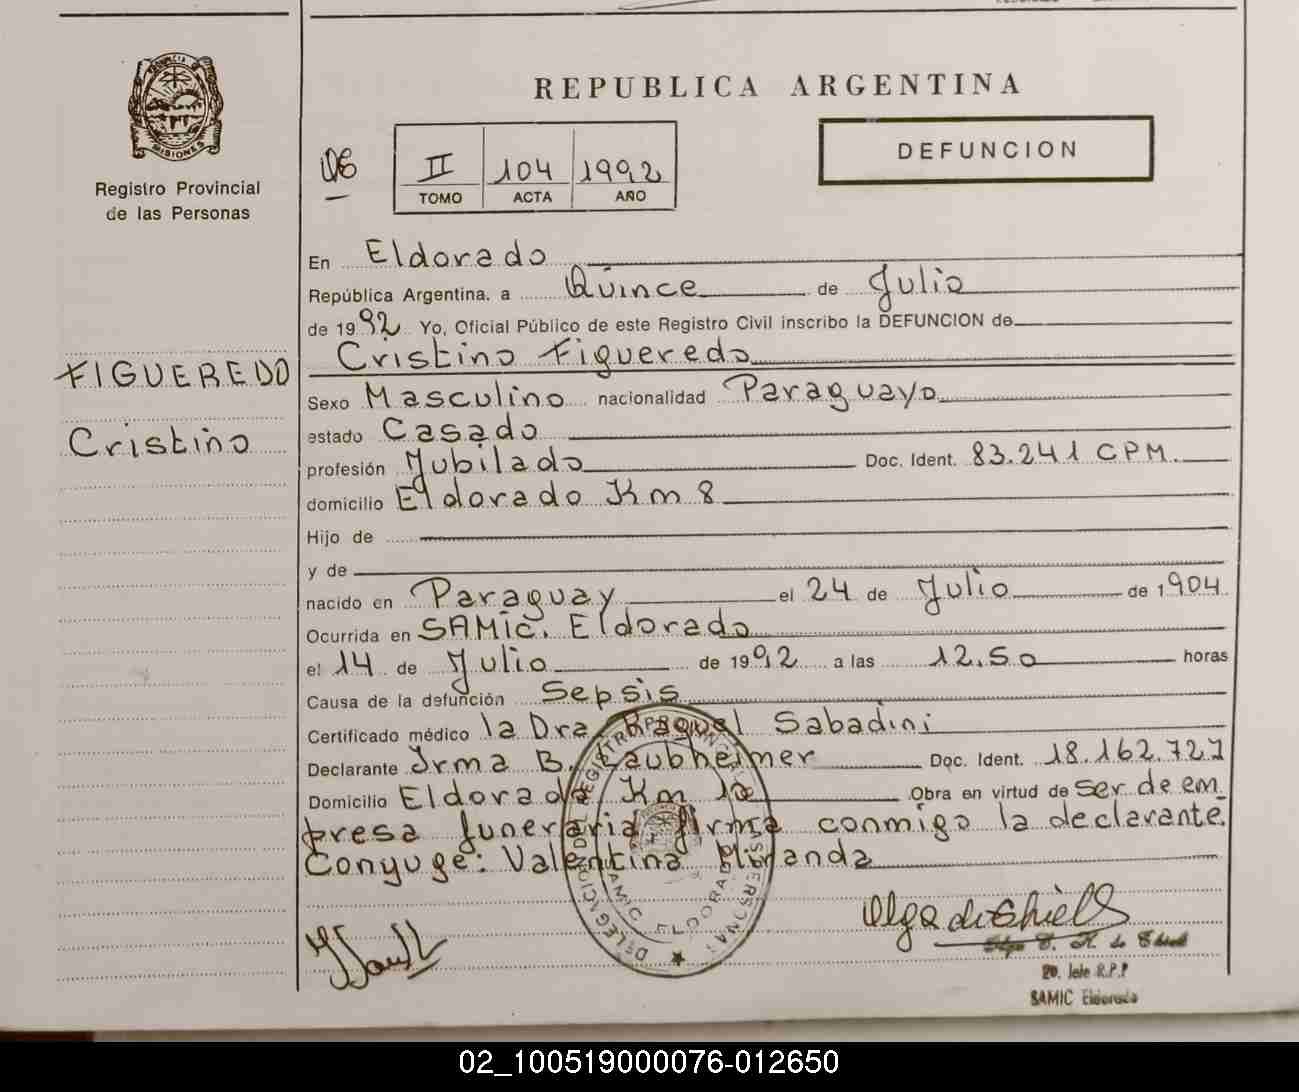 REPUBLICA ARGENTINA
PROVINCIA DE MISIONES
Registro Provincial
de las Personas
II 104 1992
TOMO ACTA AÑO
DEFUNCION
En Eldorado
República Argentina. a Quince de Julio
de 1992 Yo, Oficial Público de este Registro Civil inscribo la DEFUNCION de
FIGUEREDO
Cristino
Cristino Figueredo
Sexo Masculino nacionalidad Paraguayo
estado Casado
profesión Jubilado Doc. Ident. 83.241 CPM.
domicilio Eldorado Km 8
Hijo de
y de
nacido en Paraguay el 24 de Julio de 1904
Ocurrida en SAMic. Eldorado
el 14 de Julio de 1992 a las 12.50 horas
Causa de la defunción Sepsis
Certificado médico la Dra Raquel Sabadini
Declarante Irma B. Laubheimer Doc. Ident. 18.162.727
Domicilio Eldorado Km 10 Obra en virtud de ser de em
presa funeraria firma conmigo la declarante.
Conyuge: Valentina Miranda
DELEGACION DEL REGISTRO PROVINCIAL DE LAS PERSONAS
SAMIC ELDORADO
Olga de Thiel
Jefe R.P.P
SAMIC Eldorado
02_100519000076-012650